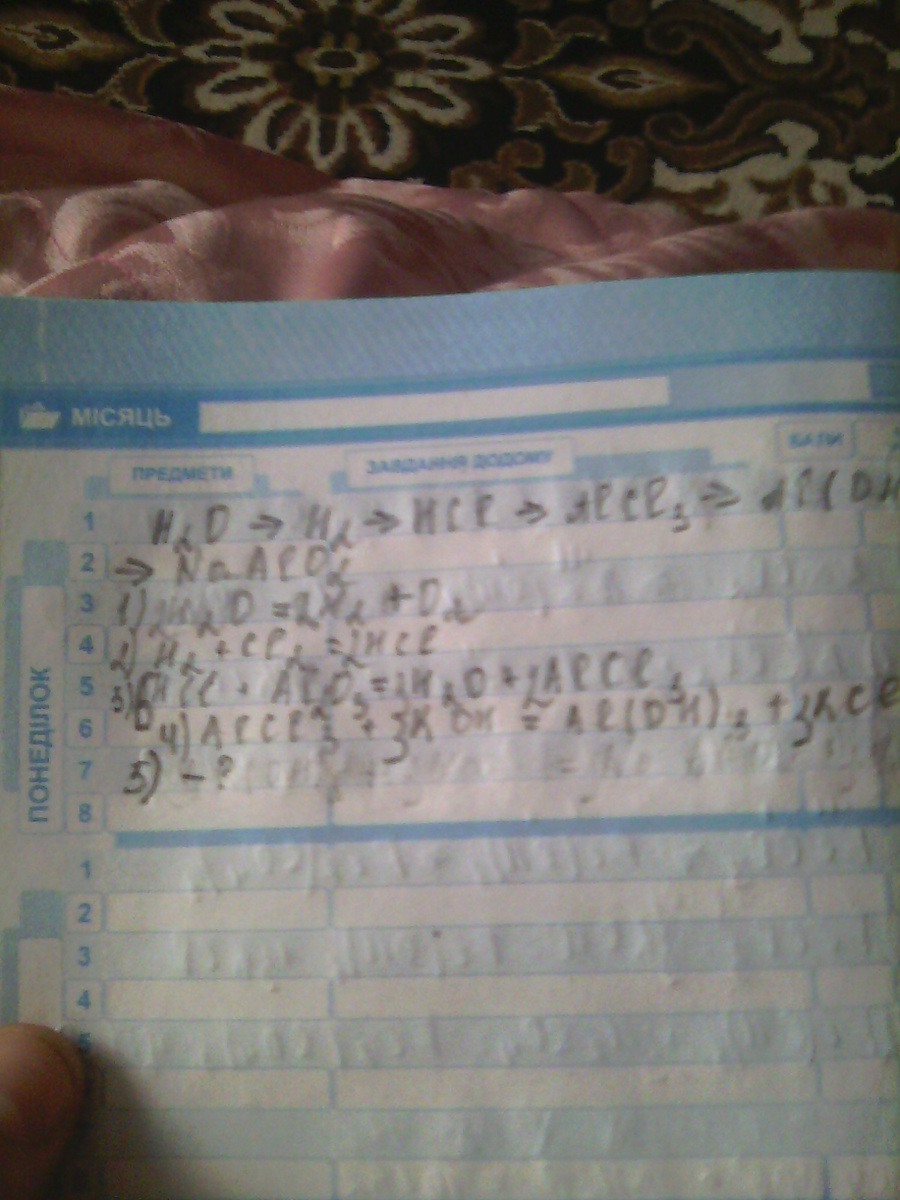 МІСЯЦЬ
ПРЕДМЕТИ ЗАВДАННЯ ДОДОМУ БАЛИ
1 H₂O → H₂ → HCl → AlCl₃ → Al(OH
2 → NaAlO₂
3 1) 2H₂O = 2H₂ + O₂
4 2) H₂ + Cl₂ = 2HCl
5 3) 6HCl + Al₂O₃ = 3H₂O + 2AlCl₃
6 4) AlCl₃ + 3KOH = Al(OH)₃ + 3KCl
7 5) - ?
8
ПОНЕДІЛОК
1
2
3
4
5